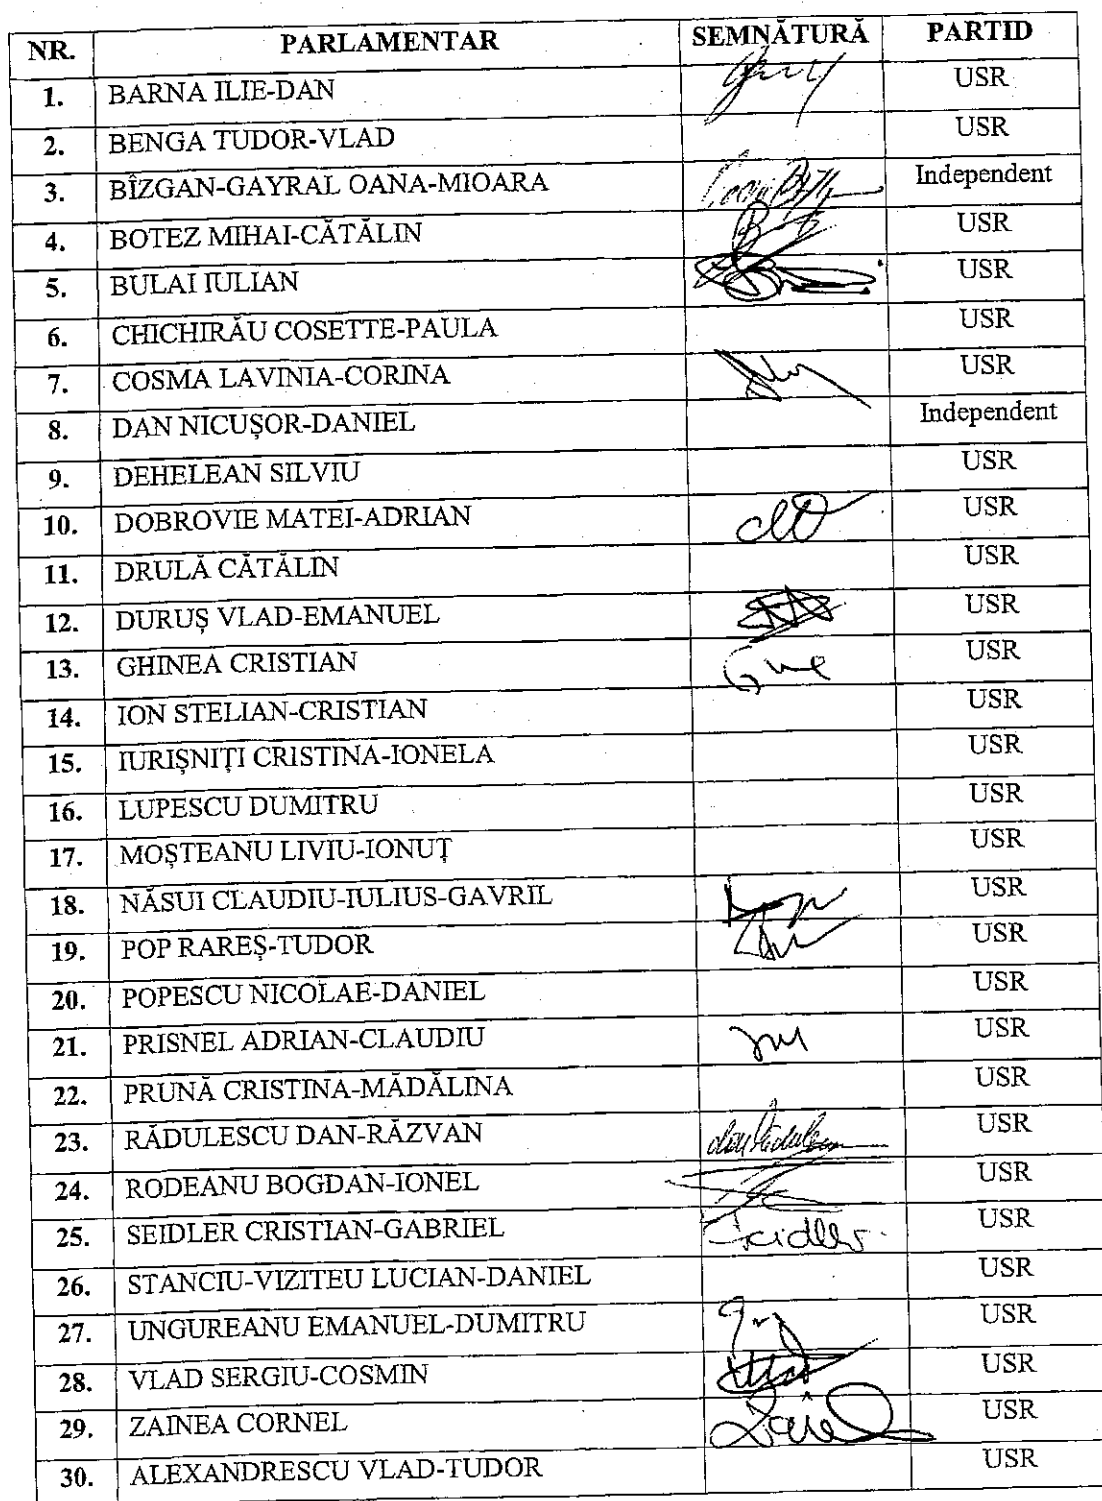 NR. PARLAMENTAR SEMNĂTURĂ PARTID
1. BARNA ILIE-DAN USR
2. BENGA TUDOR-VLAD USR
3. BÎZGAN-GAYRAL OANA-MIOARA Independent
4. BOTEZ MIHAI-CĂTĂLIN USR
5. BULAI IULIAN USR
6. CHICHIRĂU COSETTE-PAULA USR
7. COSMA LAVINIA-CORINA USR
8. DAN NICUȘOR-DANIEL Independent
9. DEHELEAN SILVIU USR
10. DOBROVIE MATEI-ADRIAN USR
11. DRULĂ CĂTĂLIN USR
12. DURUȘ VLAD-EMANUEL USR
13. GHINEA CRISTIAN USR
14. ION STELIAN-CRISTIAN USR
15. IURIȘNIȚI CRISTINA-IONELA USR
16. LUPESCU DUMITRU USR
17. MOȘTEANU LIVIU-IONUȚ USR
18. NĂSUI CLAUDIU-IULIUS-GAVRIL USR
19. POP RAREȘ-TUDOR USR
20. POPESCU NICOLAE-DANIEL USR
21. PRISNEL ADRIAN-CLAUDIU USR
22. PRUNĂ CRISTINA-MĂDĂLINA USR
23. RĂDULESCU DAN-RĂZVAN USR
24. RODEANU BOGDAN-IONEL USR
25. SEIDLER CRISTIAN-GABRIEL Seidler USR
26. STANCIU-VIZITEU LUCIAN-DANIEL USR
27. UNGUREANU EMANUEL-DUMITRU USR
28. VLAD SERGIU-COSMIN USR
29. ZAINEA CORNEL USR
30. ALEXANDRESCU VLAD-TUDOR USR